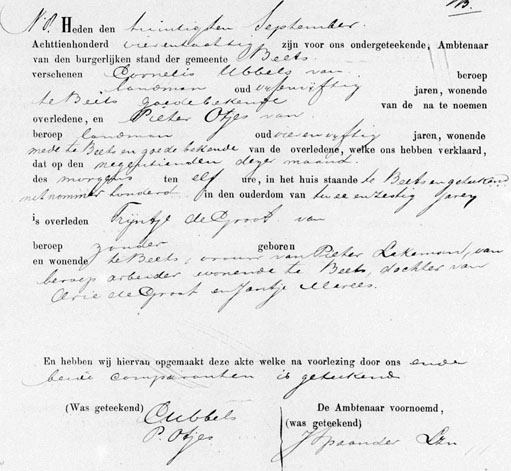 N°. Heden den twintigsten September
Achttienhonderd vierentachtig zijn voor ons ondergeteekende, Ambtenaar
van den burgerlijken stand der gemeente Beets
verschenen Cornelis Ubbels van beroep
landman oud vijfenvijftig jaren, wonende
te Beets goede bekende van de na te noemen
overledene, en Pieter Otjes van
beroep landman oud vierenvijftig jaren, wonende
mede te Beets en goede bekende van de overledene, welke ons hebben verklaard,
dat op den negentienden dezer maand
des morgens ten elf ure, in het huis staande te Beets en geteekend
met nommer honderd in den ouderdom van twee en zestig jaren
is overleden Trijntje de Groot van
beroep zonder geboren
en wonende te Beets, vrouw van Pieter Lakeman, van
beroep arbeider wonende te Beets, dochter van
Arie de Groot en Jantje Marees.
En hebben wij hiervan opgemaakt deze akte welke na voorlezing door ons en de
beide comparanten is geteekend
(Was geteekend) De Ambtenaar voornoemd,
C Ubbels (was geteekend)
P. Otjes J Spaander